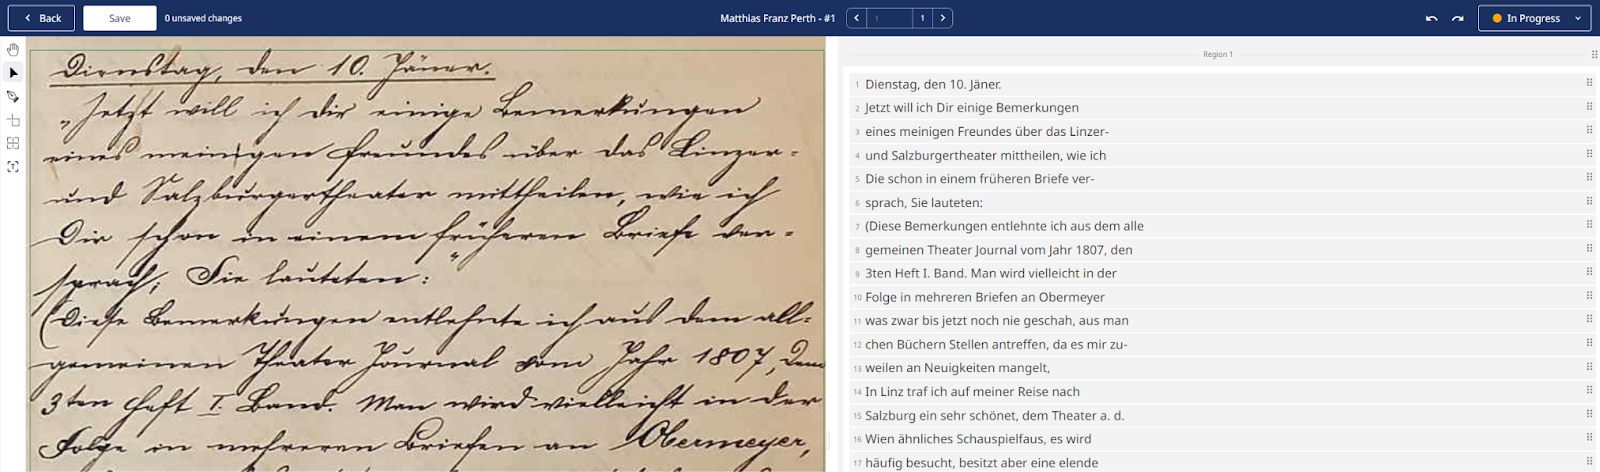 Back
Save
0 unsaved changes
Matthias Franz Perth - #1
1
1
In Progress
Dienstag, den 10. Jäner.
„Jetzt will ich dir einige Bemerkungen
eines meinigen Freundes über das Linzer=
und Salzburgertheater mittheilen, wie ich
Dir schon in einem früheren Briefe ver=
sprach; Sie lauteten:
(Diese Bemerkungen entlehnte ich aus dem all=
gemeinen Theater Journal vom Jahr 1807, dem
3ten Heft I. Band. Man wird vielleicht in der
Folge in mehreren Briefen an Obermeyer,
Region 1
1 Dienstag, den 10. Jäner.
2 Jetzt will ich Dir einige Bemerkungen
3 eines meinigen Freundes über das Linzer-
4 und Salzburgertheater mittheilen, wie ich
5 Die schon in einem früheren Briefe ver-
6 sprach, Sie lauteten:
7 (Diese Bemerkungen entlehnte ich aus dem alle
8 gemeinen Theater Journal vom Jahr 1807, den
9 3ten Heft I. Band. Man wird vielleicht in der
10 Folge in mehreren Briefen an Obermeyer
11 was zwar bis jetzt noch nie geschah, aus man
12 chen Büchern Stellen antreffen, da es mir zu-
13 weilen an Neuigkeiten mangelt,
14 In Linz traf ich auf meiner Reise nach
15 Salzburg ein sehr schönet, dem Theater a. d.
16 Wien ähnliches Schauspielfaus, es wird
17 häufig besucht, besitzt aber eine elende